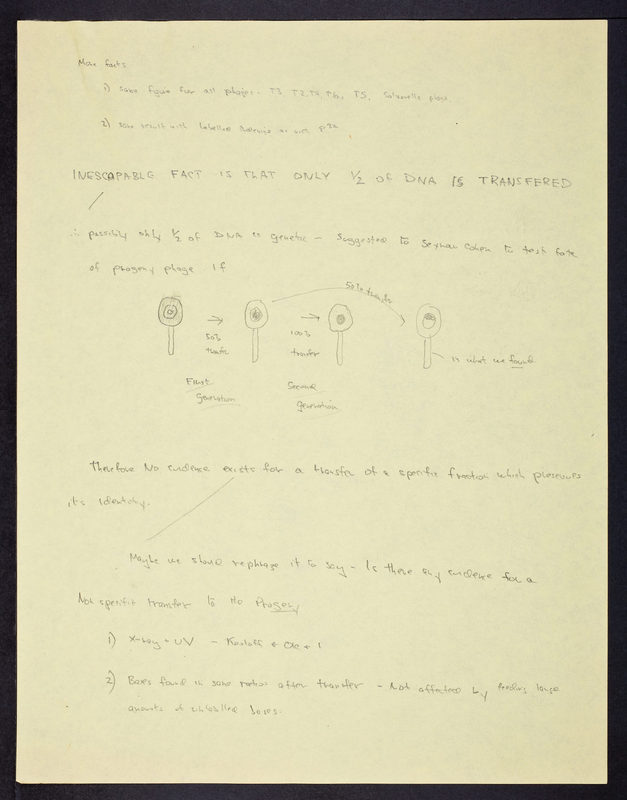 More facts
1) same figure for all phages - T3, T2, T4, T6, T5, Salmonella phage.
2) same result with labelled adenine as with P32,
INESCAPABLE FACT IS THAT ONLY 1/2 OF DNA IS TRANSFERED
∴ possibly only 1/2 of DNA is genetic - Suggested to Seymour Cohen to test fate
of progeny phage If
50% transfer
50% 100%
transfer transfer is what we found
First Second
generation generation
Therefore No evidence exists for a transfer of a specific fraction which preserves
its identity.
Maybe we should rephrase it to say - Is there any evidence for a
Non specific transfer to the Progeny
1) X-ray + UV - Kozloff + Ole + I
2) Bases found in same ratios after transfer - Not affected by feeding large
amounts of unlabelled bases.